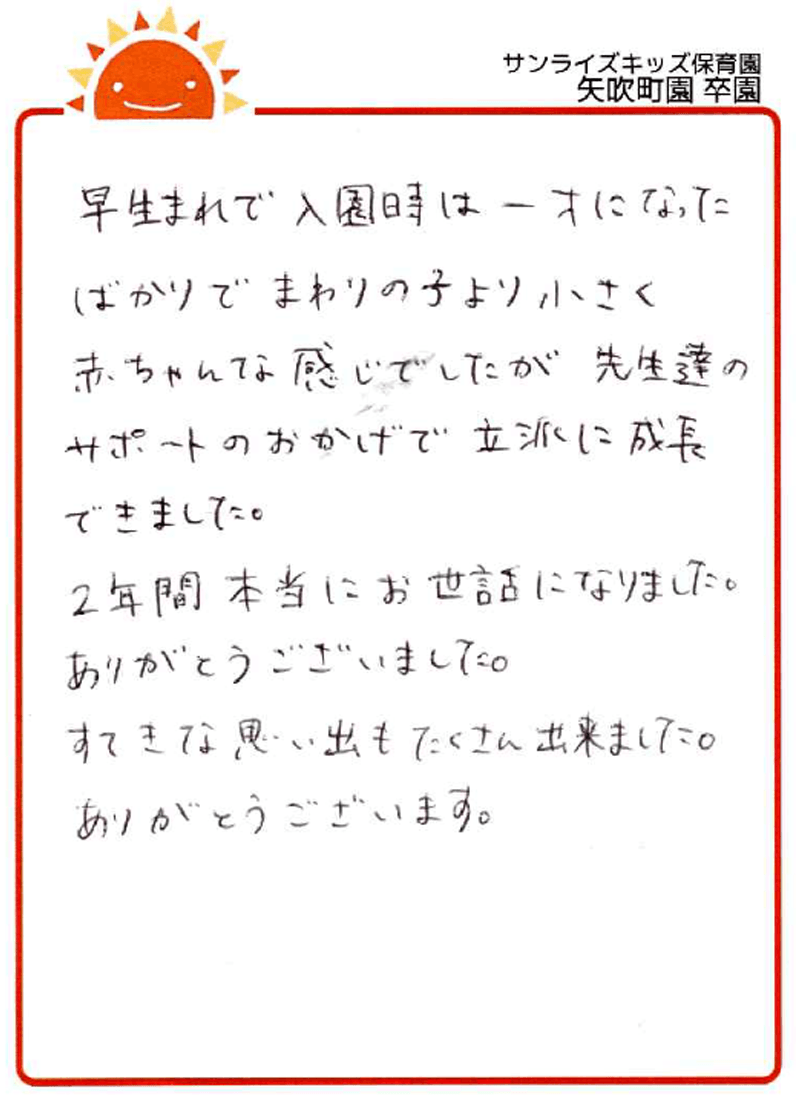 サンライズキッズ保育園
矢吹町園 卒園
早生まれで 入園時は 一才になった
ばかりで まわりの子より 小さく
赤ちゃんな 感じでしたが 先生達の
サポートのおかげで 立派に 成長
できました。
2年間 本当に お世話になりました。
ありがとうございました。
すてきな 思い出も たくさん 出来ました。
ありがとうございます。